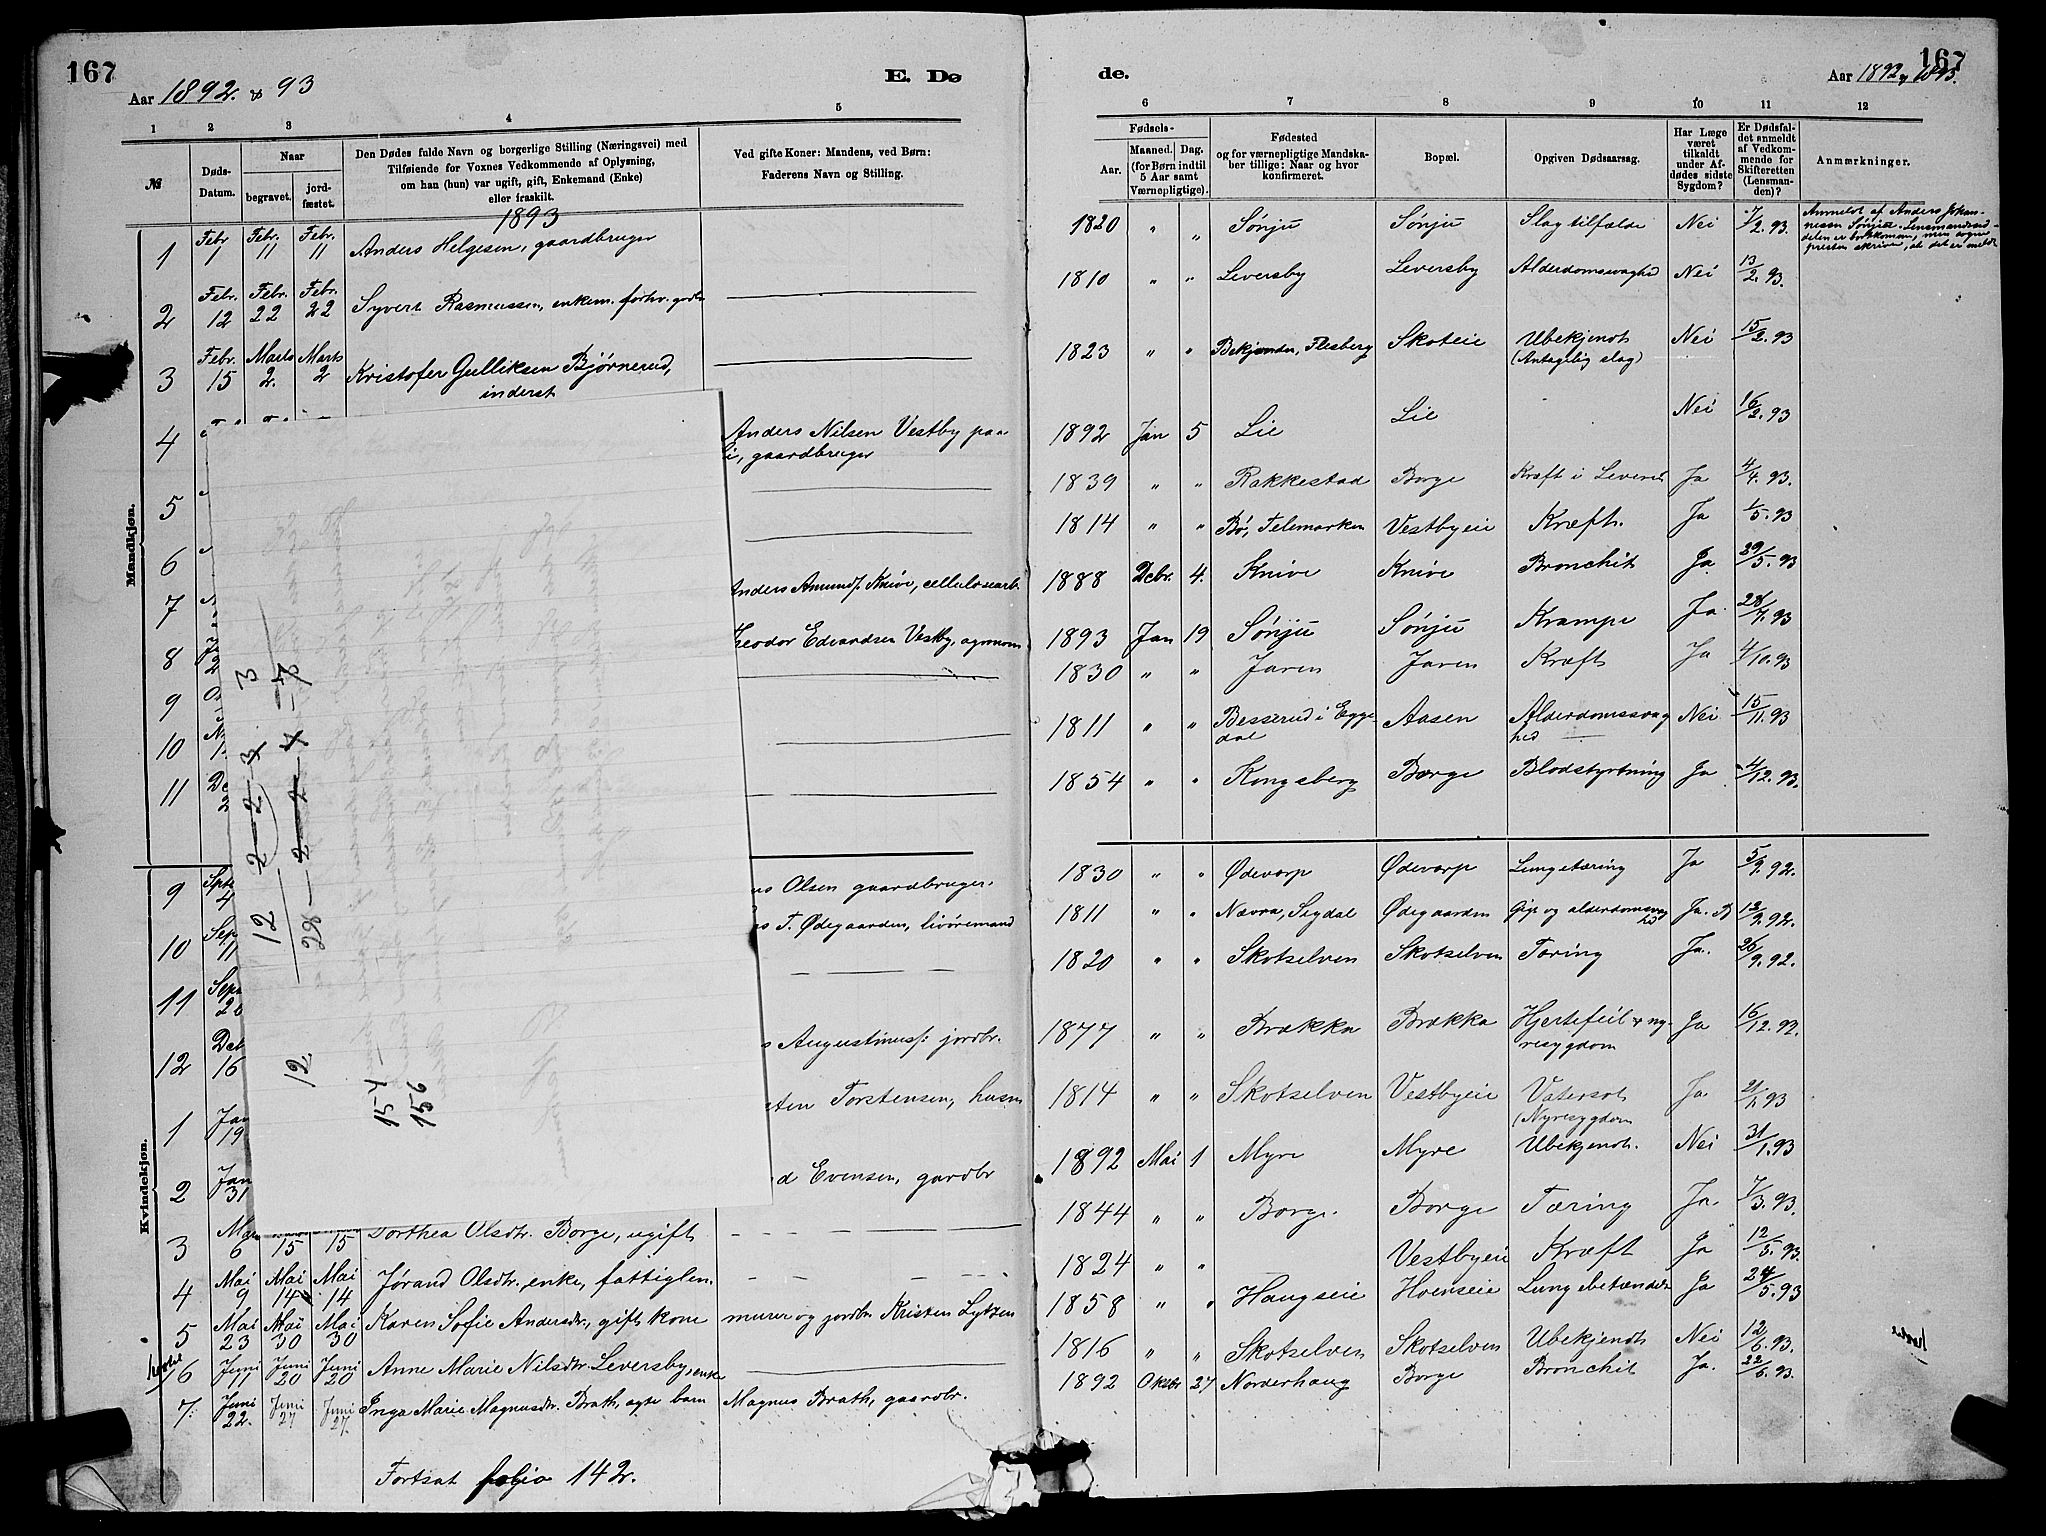 167
Aar 1892. & 93
E. Dø
1 2 3 4 5
№
Døds-Datum.
Naar
begravet.
jord-fæstet.
Den Dødes fulde Navn og borgerlige Stilling (Næringsvei) med
Tilføiende for Voxnes Vedkommende af Oplysning,
om han (hun) var ugift, gift, Enkemand (Enke)
eller fraskilt.
Ved gifte Koner: Mandens, ved Børn:
Faderens Navn og Stilling.
1893
Mandkjøn.
1 Febr 7 Febr. 11 Febr. 11 Anders Helgesen, gaardbruger
2 Febr. 12 Febr. 22 Febr. 22 Syvert Rasmussen, enkem. forhv. gdbr
3 Febr. 15 Marts 2. Marts 2 Kristofer Gulliksen Bjørnerud,
inderst
4 Anders Nilsen Vestby paa
i, gaardbruger
5
6
7 Anders Amunds. Knive, cellulosearb.
8 Theodor Edvardsen Vestby, agronom
9
10
11
Kvindekjøn.
9 Septe 4 Olsen gaardbruger.
10 Sep 11 T. Ødegaarden, livøremand
11 Sept 26
12 Deb 16 Augustinuss: jordbr.
1 Jan 19 sten Torstensen, husm
2 Jan 31 d Evensen, gardbr
3 Mar 6 15 15 Dorthea Olsdtr. Borge, ugift
4 Mai 9 Mai 14 Mai 14 Jørand Olsdtr. enke, fattiglem.
5 Mai 23 Mai 30 Mai 30 Karen Sofie Andersdr., gift kone murer og jordbr Kristen Lytzen
6 Juni 11 Juni 20 Juni 20 Anne Marie Nilsdtr. Leversby, enke
7. Juni 22. Juni 27 Juni 27. Inga Marie Magnusdr. Brath, ægte barn Magnus Brath, gaardbr.
Fortsat folio 142.
3
12
28
12
154
156
de.
167
Aar 1892 & 1893.
6 7 8 9 10 11 12
Fødsels-
Aar.
Maaned. Dag.
(for Børn indtil
5 Aar samt
Værnepligtige).
Fødested
og for værnepligtige Mandska-
ber tillige: Naar og hvor
konfirmeret.
Bopæl.
Opgiven Dødsaarsag.
Har Læge
været
tilkaldt
under Af-
dødes sidste
Sygdom?
Er Dødsfal-
det anmeldt
af Vedkom-
mende for
Skifteretten
(Lensman-
den)?
Anmærkninger.
1820 " " Sønju Sønju Slagtilfælde Nei 7/2. 93. Anmeldt af Anders Johan-
nessen Sønju. Lensmandssed-
delen er bortkommen, men sogne-
presten skriver, at det er meldt
1810 " " Leversby Leversby Alderdomssvaghed Nei 13/2. 93.
1823 " " Bekjender, Flesberg Skoteie Ubekjendt Nei 15/2. 93
(Antagelig slag)
1892 Jan 5 Lie Lie Nei 16/2. 93
1839 " " Rakkestad Borge Kræft i Leveren Ja 4/4. 93.
1814 " " Bø, Telemarken Vestbyeie Kræft. Ja 1/5. 93
1888 Dcbr. 4. Knive Knive Bronchit Ja 29/5. 93
1893 Jan 19 Sønju Sønju Krampe Ja. 93
1830 " " Jaren Jaren Kræft Ja 4/10. 93
1811 " " Besserud i Egge-
dal Aasen Alderdomssvag
hed Nei 15/11. 93
1854 " " Kongsberg Borge Blodstyrtning Ja 4/12. 93.
1830 " " Ødevorp Ødevorp Lungetæring Ja 5/9. 92.
1811 " " Nævra, Sigdal Ødegaarden Gigt og alderdomssvag
hed Ja. 12/9. 92.
1820 " " Skotselven Skotselven Tæring Ja. 26/9. 92.
1877 " " Brækka Brækka Hjertefeil & ny-
resygdom Ja 16/12. 92.
1814 " " Skotselven Vestbyeie Vatersot Ja 21/1. 93
(Nyresygdom
1892 Mai 1 Myre Myre Ubekjendt. Nei 31/1. 93
1844 " " Borge. Borge Tæring Ja. 7/3. 93.
1824 " " Vestbyeie Kræft Ja 12/5. 93.
1858 " " Haugseie Hoenseie Lungebetændelse Ja 24/5. 93
1816 " " Skotselven Skotselven Ubekjendt Nei 12/6. 93.
1892 Oktbr 27 Norderhaug Borge Bronchit Ja. 22/6. 93.